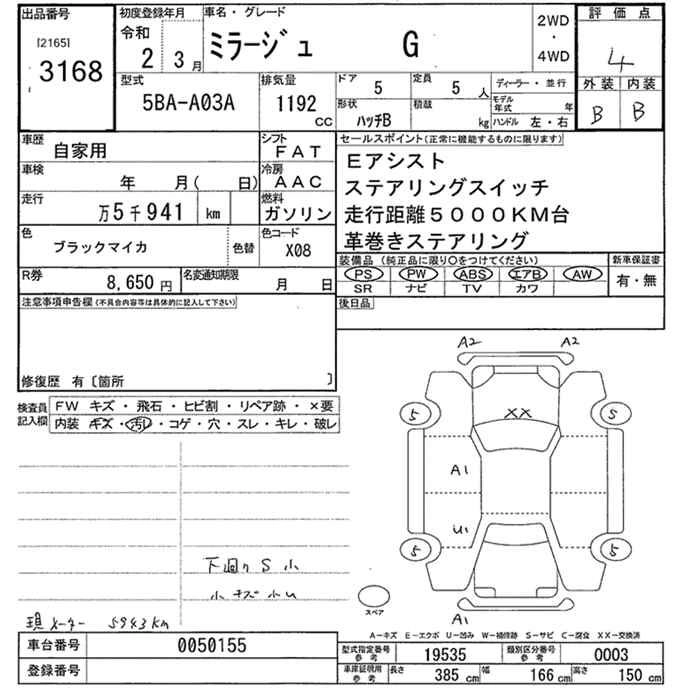 出品番号
[2165]
3168
初度登録年月
令和
2 3月
車名・グレード
ミラージュ G
2WD
・
4WD
評価点
4
外装 内装
B B
型式
5BA-A03A
排気量
1192
cc
ドア
5
定員
5 人
ディーラー・並行
形状
ハッチB
積載
kg
モデル年式 年
ハンドル 左・右
車歴
自家用
シフト
FAT
車検
年 月( 日)
冷房
AAC
走行
万5千941 km
燃料
ガソリン
色
ブラックマイカ
色替
色コード
X08
R券
8,650円
名変通知期限
月 日
セールスポイント(正常に機能するものに限ります)
Eアシスト
ステアリングスイッチ
走行距離5000KM台
革巻きステアリング
装備品(純正品に限り○をつけてください)
PS PW ABS エアB AW
SR ナビ TV カワ
新車保証書
有・無
後日品
注意事項申告欄(不具合内容等は具体的に記入して下さい)
修復歴 有〔箇所 〕
検査員記入欄
FW キズ・飛石・ヒビ割・リペア跡・×要
内装 キズ・汚レ・コゲ・穴・スレ・キレ・破レ
A2 A2
5 5
XX
A1
U1
5 5
A1
スペア
下廻りS小
小キズ小U
現メーター 5943km
A-キズ E-エクボ U-凹み W-補修跡 S-サビ C-腐食 XX-交換済
車台番号 0050155
登録番号
型式指定番号 参考 19535
類別区分番号 参考 0003
車庫証明用 参考 長さ 385cm 幅 166cm 高さ 150cm